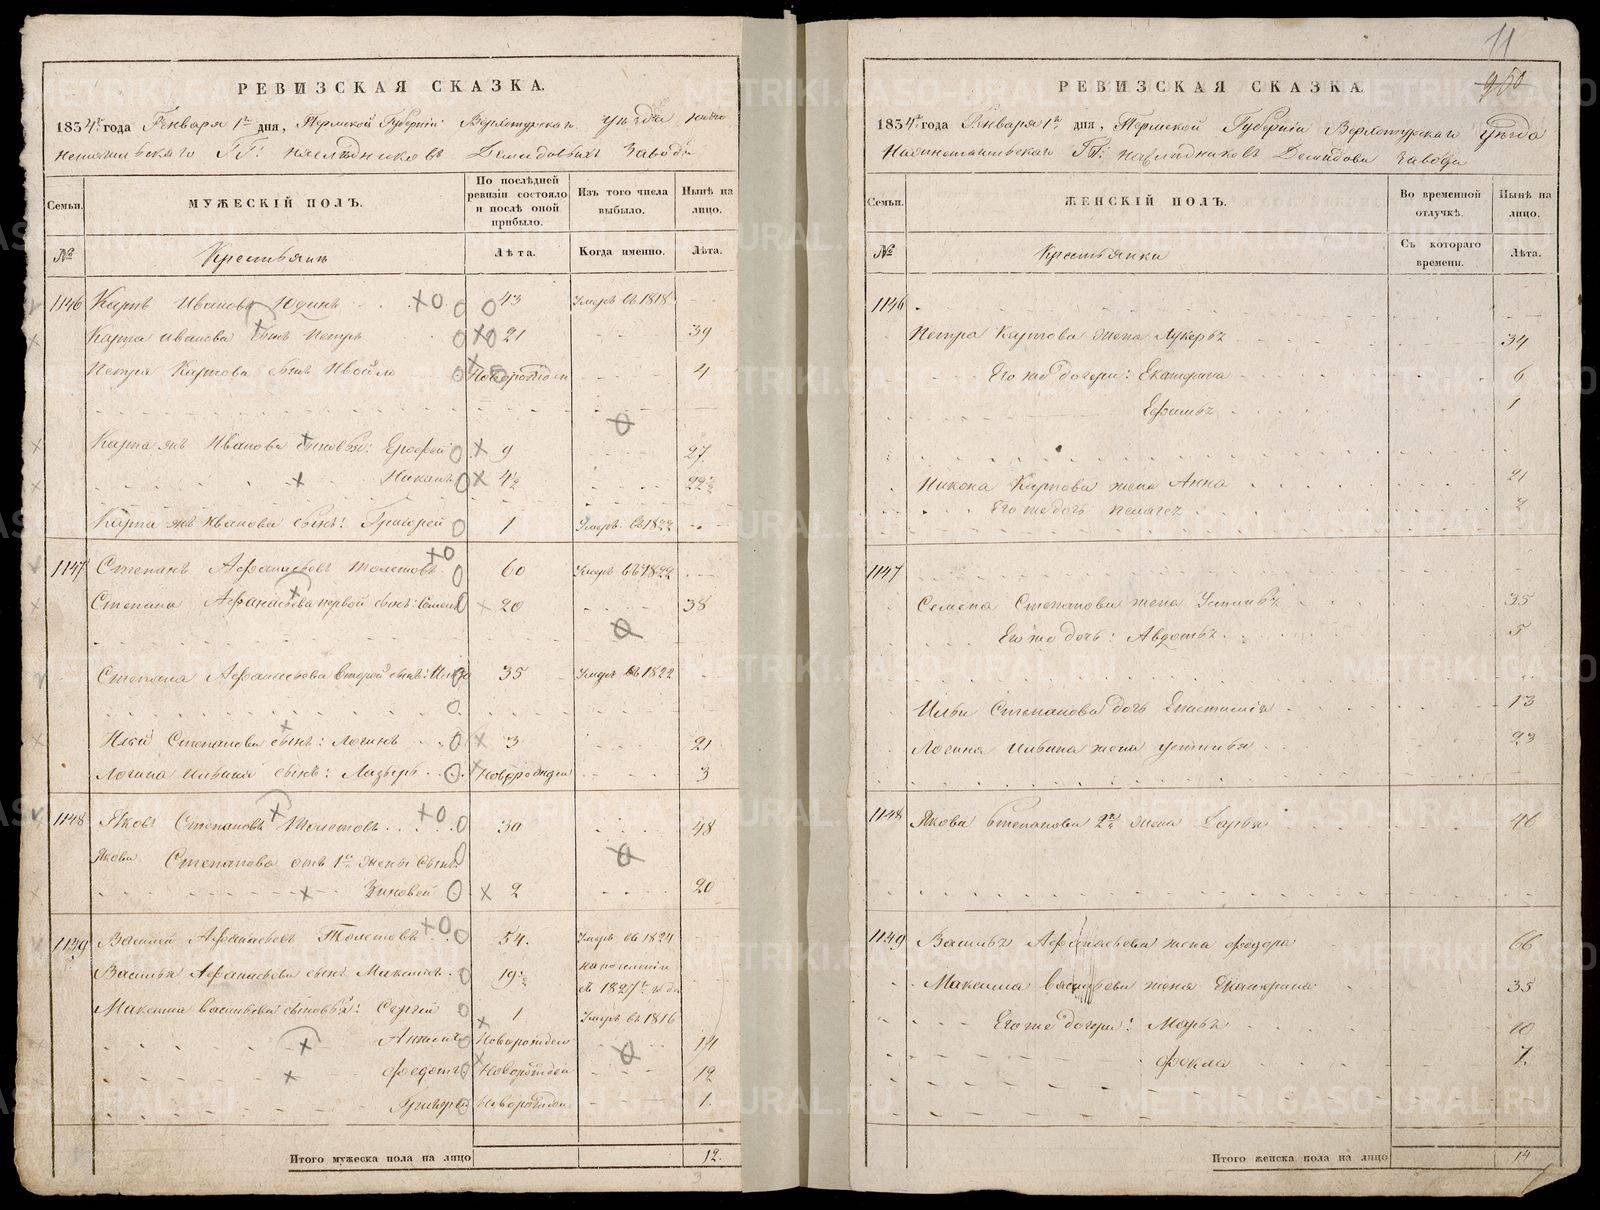 11
950
РЕВИЗСКАЯ СКАЗКА.
1834го года Генваря 1го дня, Пермской Губернiи Верхотурскаго уѣзда нижне
ГГ: наслѣдниковъ Демидовыхъ завода
Семьи.
МУЖЕСКIЙ ПОЛЪ.
По послѣдней ревизiи состояло и послѣ оной прибыло.
Изъ того числа выбыло.
Нынѣ на лицо.
№
Крестьянъ
Лѣта.
Когда именно.
Лѣта.
1146 Карпъ Ивановъ Юдинъ 43 Умеръ въ 1818
Карпа Иванова сынъ Петръ 21 39
Петра Карпова сынъ новорожден 4
Карпа жъ Иванова сыновья: Ерофей 9 27
Никонъ 4½ 22½
Карпа жъ Иванова сынъ: Григорей 1 Умеръ въ 1822
1147 Степанъ Афанасьевъ Толстовъ 60 Умеръ въ 1822
Степана Афанасьева первой сынъ: Семенъ 20 38
Степана Афанасьева второй сынъ: Илья 35 Умеръ въ 1822
Ильи Степанова сынъ: Логинъ 3 21
Логина Ильина сынъ: Лазырь Новорожден 3
1148 Яковъ Степановъ Толстовъ 30 48
Якова Степанова отъ 1й жены сынъ
Зиновей 2 20
1149 Василей Афанасьевъ Толстовъ 54 Умеръ въ 1824
Василья Афанасьева сынъ Максимъ 19½ на поселенiи
въ 1827м году
Максима Васильева сыновья: Сергей 1 Умеръ въ 1816
Новорожден 14
Федотъ Новорожден 12
Григорей новорожден 1
Итого мужеска пола на лицо 12.
РЕВИЗСКАЯ СКАЗКА.
1834го года Генваря 1го дня, Пермской Губернiи Верхотурскаго уѣзда
ГГ: наслѣдниковъ Демидова завода
Семьи.
ЖЕНСКIЙ ПОЛЪ.
Во временной отлучкѣ.
Нынѣ на лицо.
№
Крестьянки
Съ котораго времени.
Лѣта.
1146
Петра Карпова жена Лукерья 34
Его же дочери: Екатерина 6
1
Никона Карпова жена Анна 21
Его же дочь Пелагея 2
1147
Семена Степанова жена Устинья 35
Его же дочь: Авдотья 5
Ильи Степанова дочь Анастасiя 13
Логина Ильина жена Устинья 23
1148 Якова Степанова 2я жена Дарья 46
1149 Василья Афанасьева жена Федора 66
Максима Васильева жена Екатерина 35
Его же дочери: Марья 10
Фекла 7
Итого женска пола на лицо 14
METRIKI.GASO-URAL.RU